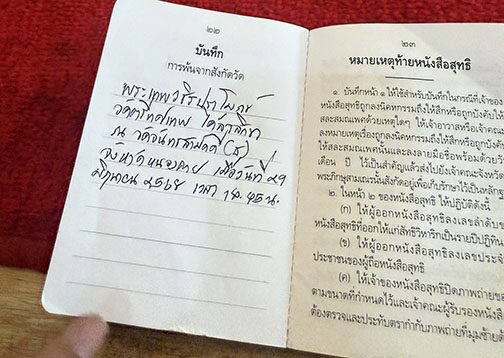 ๒๒
บันทึก
การพ้นจากสังกัดวัด
พระเทพวชิรปาโมกข์
วัดตรีทศเทพ ได้ลาสิกขา
ณ วัดอินทรสามัคคี (ธ)
จังหวัดหนองคาย เมื่อวันที่ ๒๙
มิถุนายน ๒๕๖๘ เวลา น.
๒๓
หมายเหตุท้ายหนังสือสุทธิ
๑. บันทึกหน้า ๑ ให้ใช้สำหรับบันทึกในกรณีที่เจ้าของ
หนังสือสุทธิถูกลงนิคหกรรมถึงให้สึกหรือถูกบังคับให้
สละสมณเพศด้วยเหตุใดๆ ให้เจ้าอาวาสหรือเจ้าคณะ
ลงหมายเหตุเรื่องถูกลงนิคหกรรมถึงให้สึกหรือถูกบังคับ
ให้สละสมณเพศนั้นและลงลายมือชื่อพร้อมด้วย
เดือน ปี ไว้เป็นสำคัญแล้วส่งไปยังเจ้าคณะจังหวัด
พระภิกษุสามเณรนั้นสังกัดอยู่เพื่อเก็บรักษาไว้เป็นหลักฐาน
๒. ในหน้า ๒ ของหนังสือสุทธิ ให้ปฏิบัติดังนี้
(ก) ให้ผู้ออกหนังสือสุทธิลงลำดับ
หนังสือสุทธิที่ออกให้แก่สัทธิวิหาริกเป็นรายปีปฏิทิน
(ข) ให้ผู้ออกหนังสือสุทธิลงเลขประจำ
ประชาชนของผู้ถือหนังสือสุทธิ
(ค) ให้เจ้าของหนังสือสุทธิปิดภาพถ่าย
ตามขนาดที่กำหนดไว้และเจ้าคณะผู้รับรองหนังสือ
ต้องตรวจและประทับตรากำกับภาพถ่ายที่มุมซ้าย